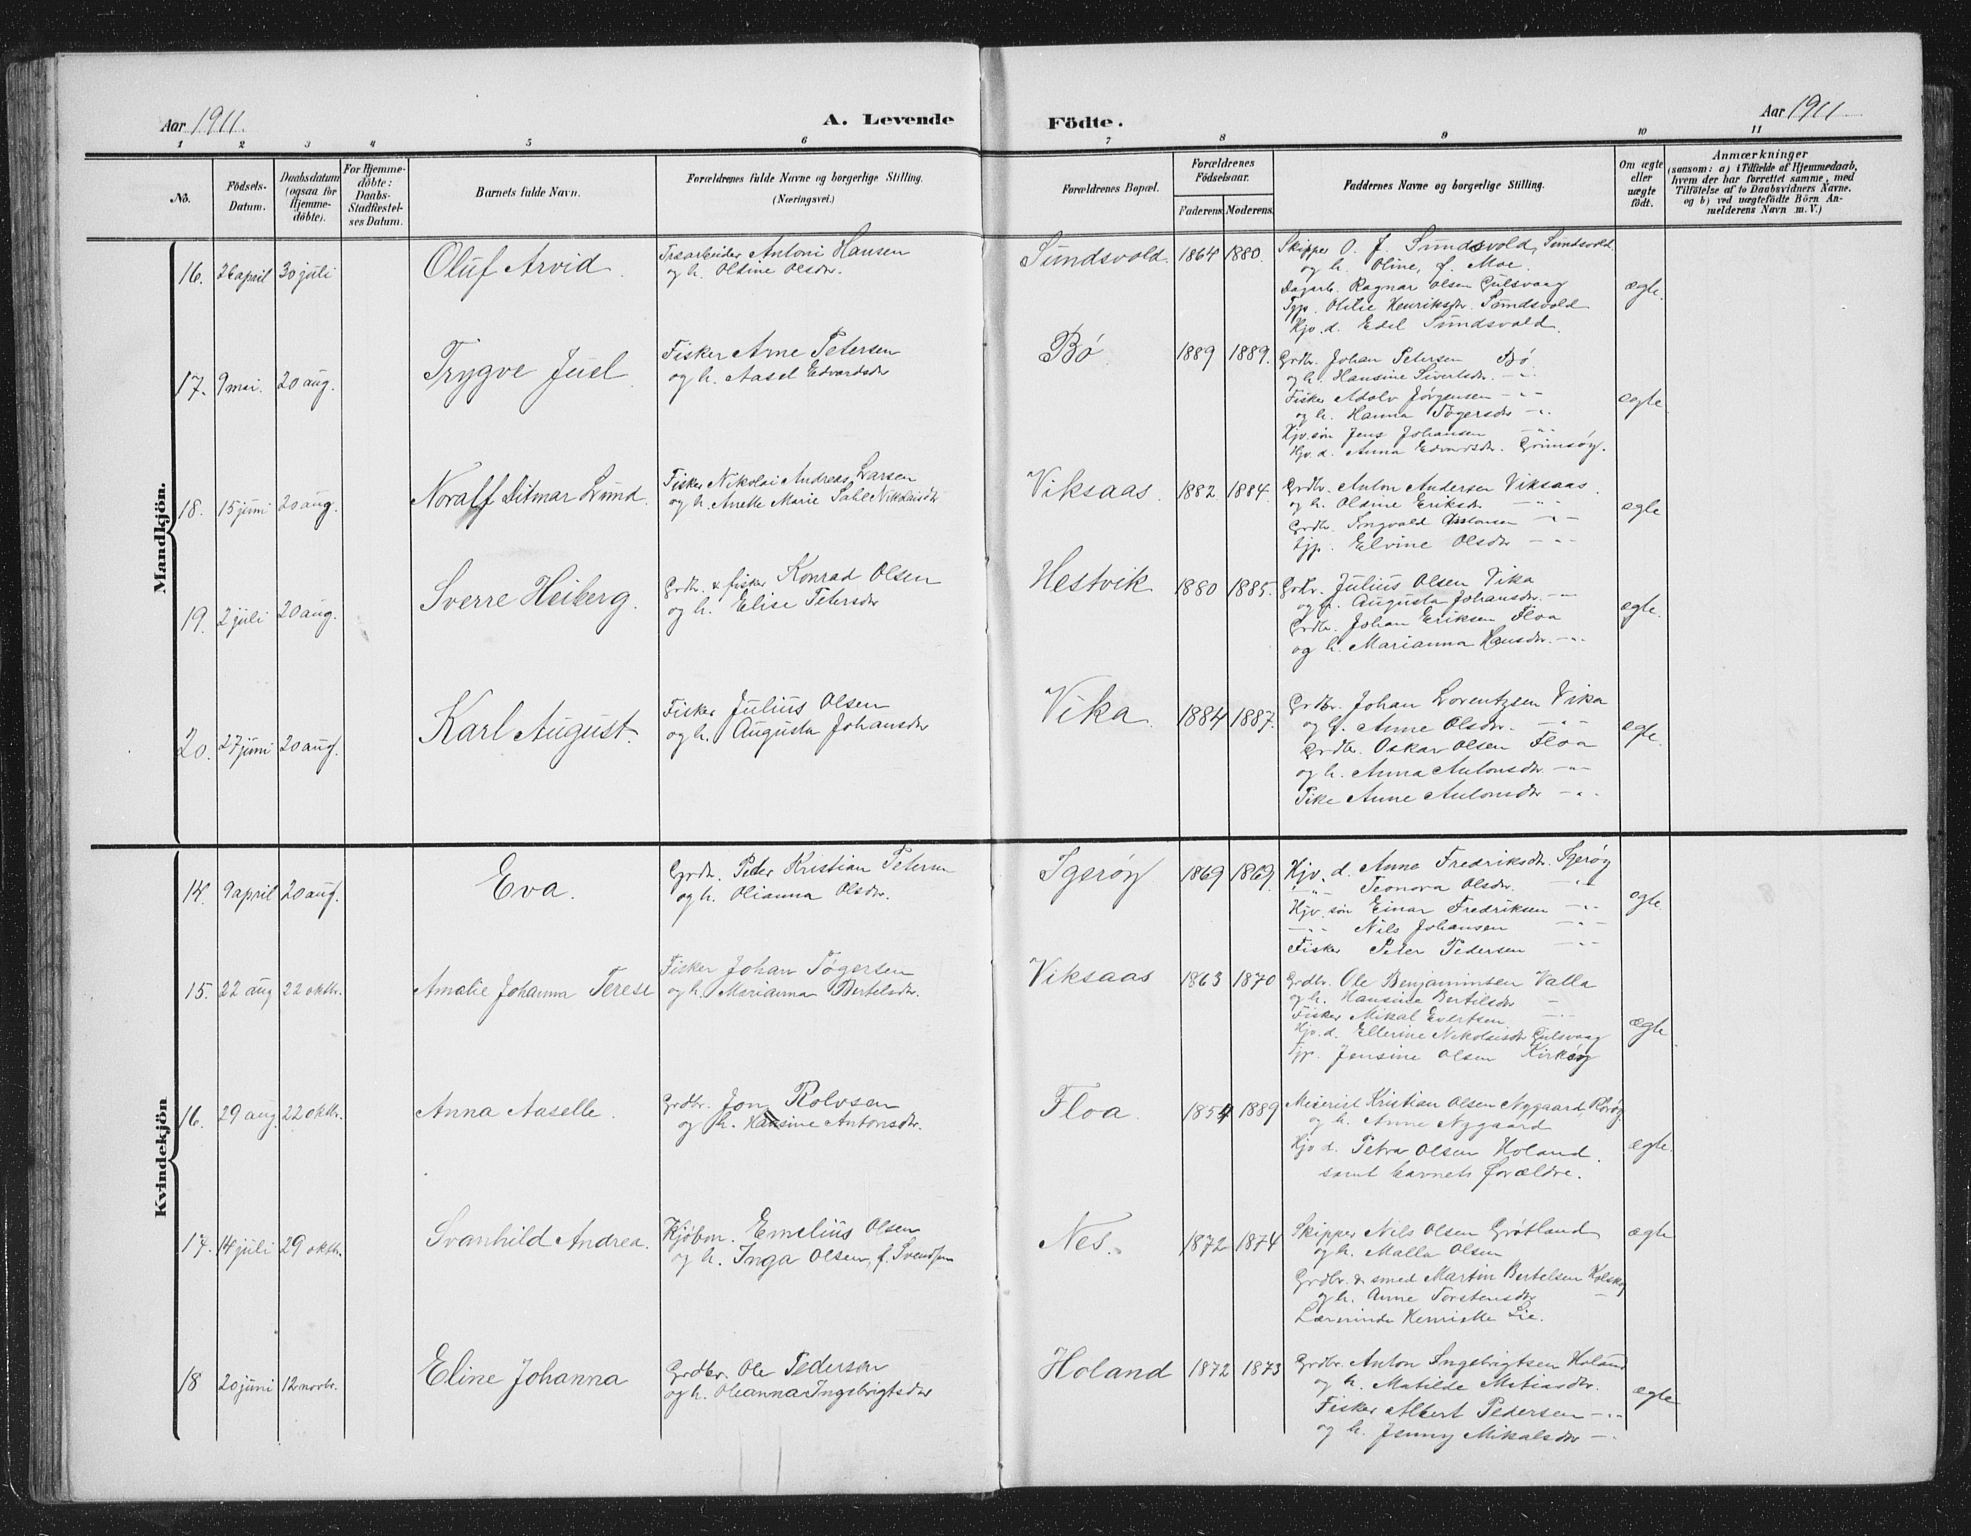 Aar 1911.
A. Levende Födte.
Aar 1911
1 2 3 4 5 6 7 8 9 10 11
No.
Födsels-Datum.
Daabsdatum (ogsaa for Hjemme-döbte).
For Hjemme-döbte: Daabs-Stadfæstel-ses Datum.
Barnets fulde Navn.
Forældrenes fulde Navne og borgerlige Stilling.
(Næringsvei.)
Forældrenes Bopæl.
Forældrenes Födselsaar.
Faderens. Moderens.
Faddernes Navne og borgerlige Stilling.
Om ægte eller uægte födt.
Anmærkninger
(saasom: a) i Tilfælde af Hjemmedaab,
hvem der har forrettet samme, med
Tilföielse af to Daabsvidners Navne.
og b) ved uægtefödte Börn An-
melderens Navn m. V.)
Mandkjön.
16. 26 april 30 juli Oluf Arvid. Træarbeider Antoni Hansen Sundsvold 1864 1880. Skipper O. J. Sundsvold, Sundsvold
og h. Oldine Olsdtr. og h. Oline, f. Moe.
Dagarb. Ragnar Olsen Gulsvaag ægte.
Tjp. Otilie Henriksdtr. Sundsvold
Hjv. d. Edel Sundsvold.
17. 9 mai. 20 aug. Trygve Juel Fisker Arne Petersen Bø. 1889 1889. Grdbr. Johan Petersen Bø
og h. Aasel Edvardsdtr og h. Hansine Sivertsdtr. -"-
Fisker Adolv Jørgensen -"- ægte.
og h. Hanna Tøgersdtr -"-
Hjv. søn Jens Johansen -"-
Hjv. d. Anna Edvardsdtr. Grimsøy.
18. 15 juni 20 aug. Noralf Ditmar Lund. Fisker Nikolai Andreas Larsen Viksaas. 1882 1884. Grdbr. Anton Andersen Viksaas.
og h. Anette Marie Nikolaisdtr og h. Oldine Eriksdtr -"-
Grdbr. Ingvald -"- ægte
Tjp. Elvine Olsdtr -"-
19. 2 juli 20 aug. Sverre Heiberg. Grdbr. & fisker Konrad Olsen Hestvik 1880 1885. Grdbr. Julius Olsen Vika
og h. Elise Petersdtr og h. Augusta Johansdtr. -"-
Grdbr. Johan Eriksen Floa ægte.
og h. Marianna Hansdtr. -"-
20. 27 juni 20 aug. Karl August. Fisker Julius Olsen Vika. 1884 1887. Grdbr. Johan Lorentzsen Vika
og h. Augusta Johansdtr og h. Anne Olsdtr. -"-
Grdbr. Oskar Olsen Floa ægte.
og h. Anna Antonsdtr -"-
Pike Anne Antonsdtr -"-
Kvindekjön
14. 9 april 20 aug. Eva. Grdbr. Peder Kristian Petersen Igerøy 1869 1869. Hjv. d. Anne Fredriksdtr. Igerøy
og h. Olianna Olsdtr. -"- Leonora Olsdtr. -"-
Hjv. søn Einar Fredriksen -"- ægte.
-"- Nils Johansen -"-
Fisker Peter Pedersen -"-
15. 22 aug 22 oktbr. Amalie Johanna Terese Fisker Johan Tøgersen Viksaas 1863 1870 Grdbr. Ole Benjaminsen Valla
og h. Marianna Bertelsdtr. og h. Hansine Bertelsdtr -
Fisker Mikal Evertsen -"- ægte
Hjv. d. Ellerine Nikolaisdtr Gulsvaag
Tjp. Jensine Olsen Kirksøy
16. 29 aug. 22 oktbr. Anna Aaselle. Grdbr. Jon Rolvsen Floa. 1854 1889 Kristian Olsen Nygaard, Rørøy
og h. Hansine Antonsdtr. og h. Anne Nygaard
Hjv d. Petra Olsen Holand. ægte.
samt barnets forældre.
17. 14 juli 29 oktbr. Svanhild Andrea. Kjøbm. Emelius Olsen Nes. 1872 1874 Skipper Nils Olsen Grøtland ægte
og h. Inga Olsen, f. Svendsen og h. Malla Olsen
Grdbr. & smed Martin Bertelsen
og h. Anne Torstensdtr -
Lærerinde Henriette Lie.
18 20 juni 12 novbr. Eline Johanna Grdbr. Ole Pedersen Holand 1872 1873 Grdbr. Anton Ingebrigtsen Holand
og h. Oleanna Ingebrigtsdtr og h. Matilde Matiasdtr.
Fisker Albert Pedersen -"- ægte
og h. Jenny Mikalsdtr -"-